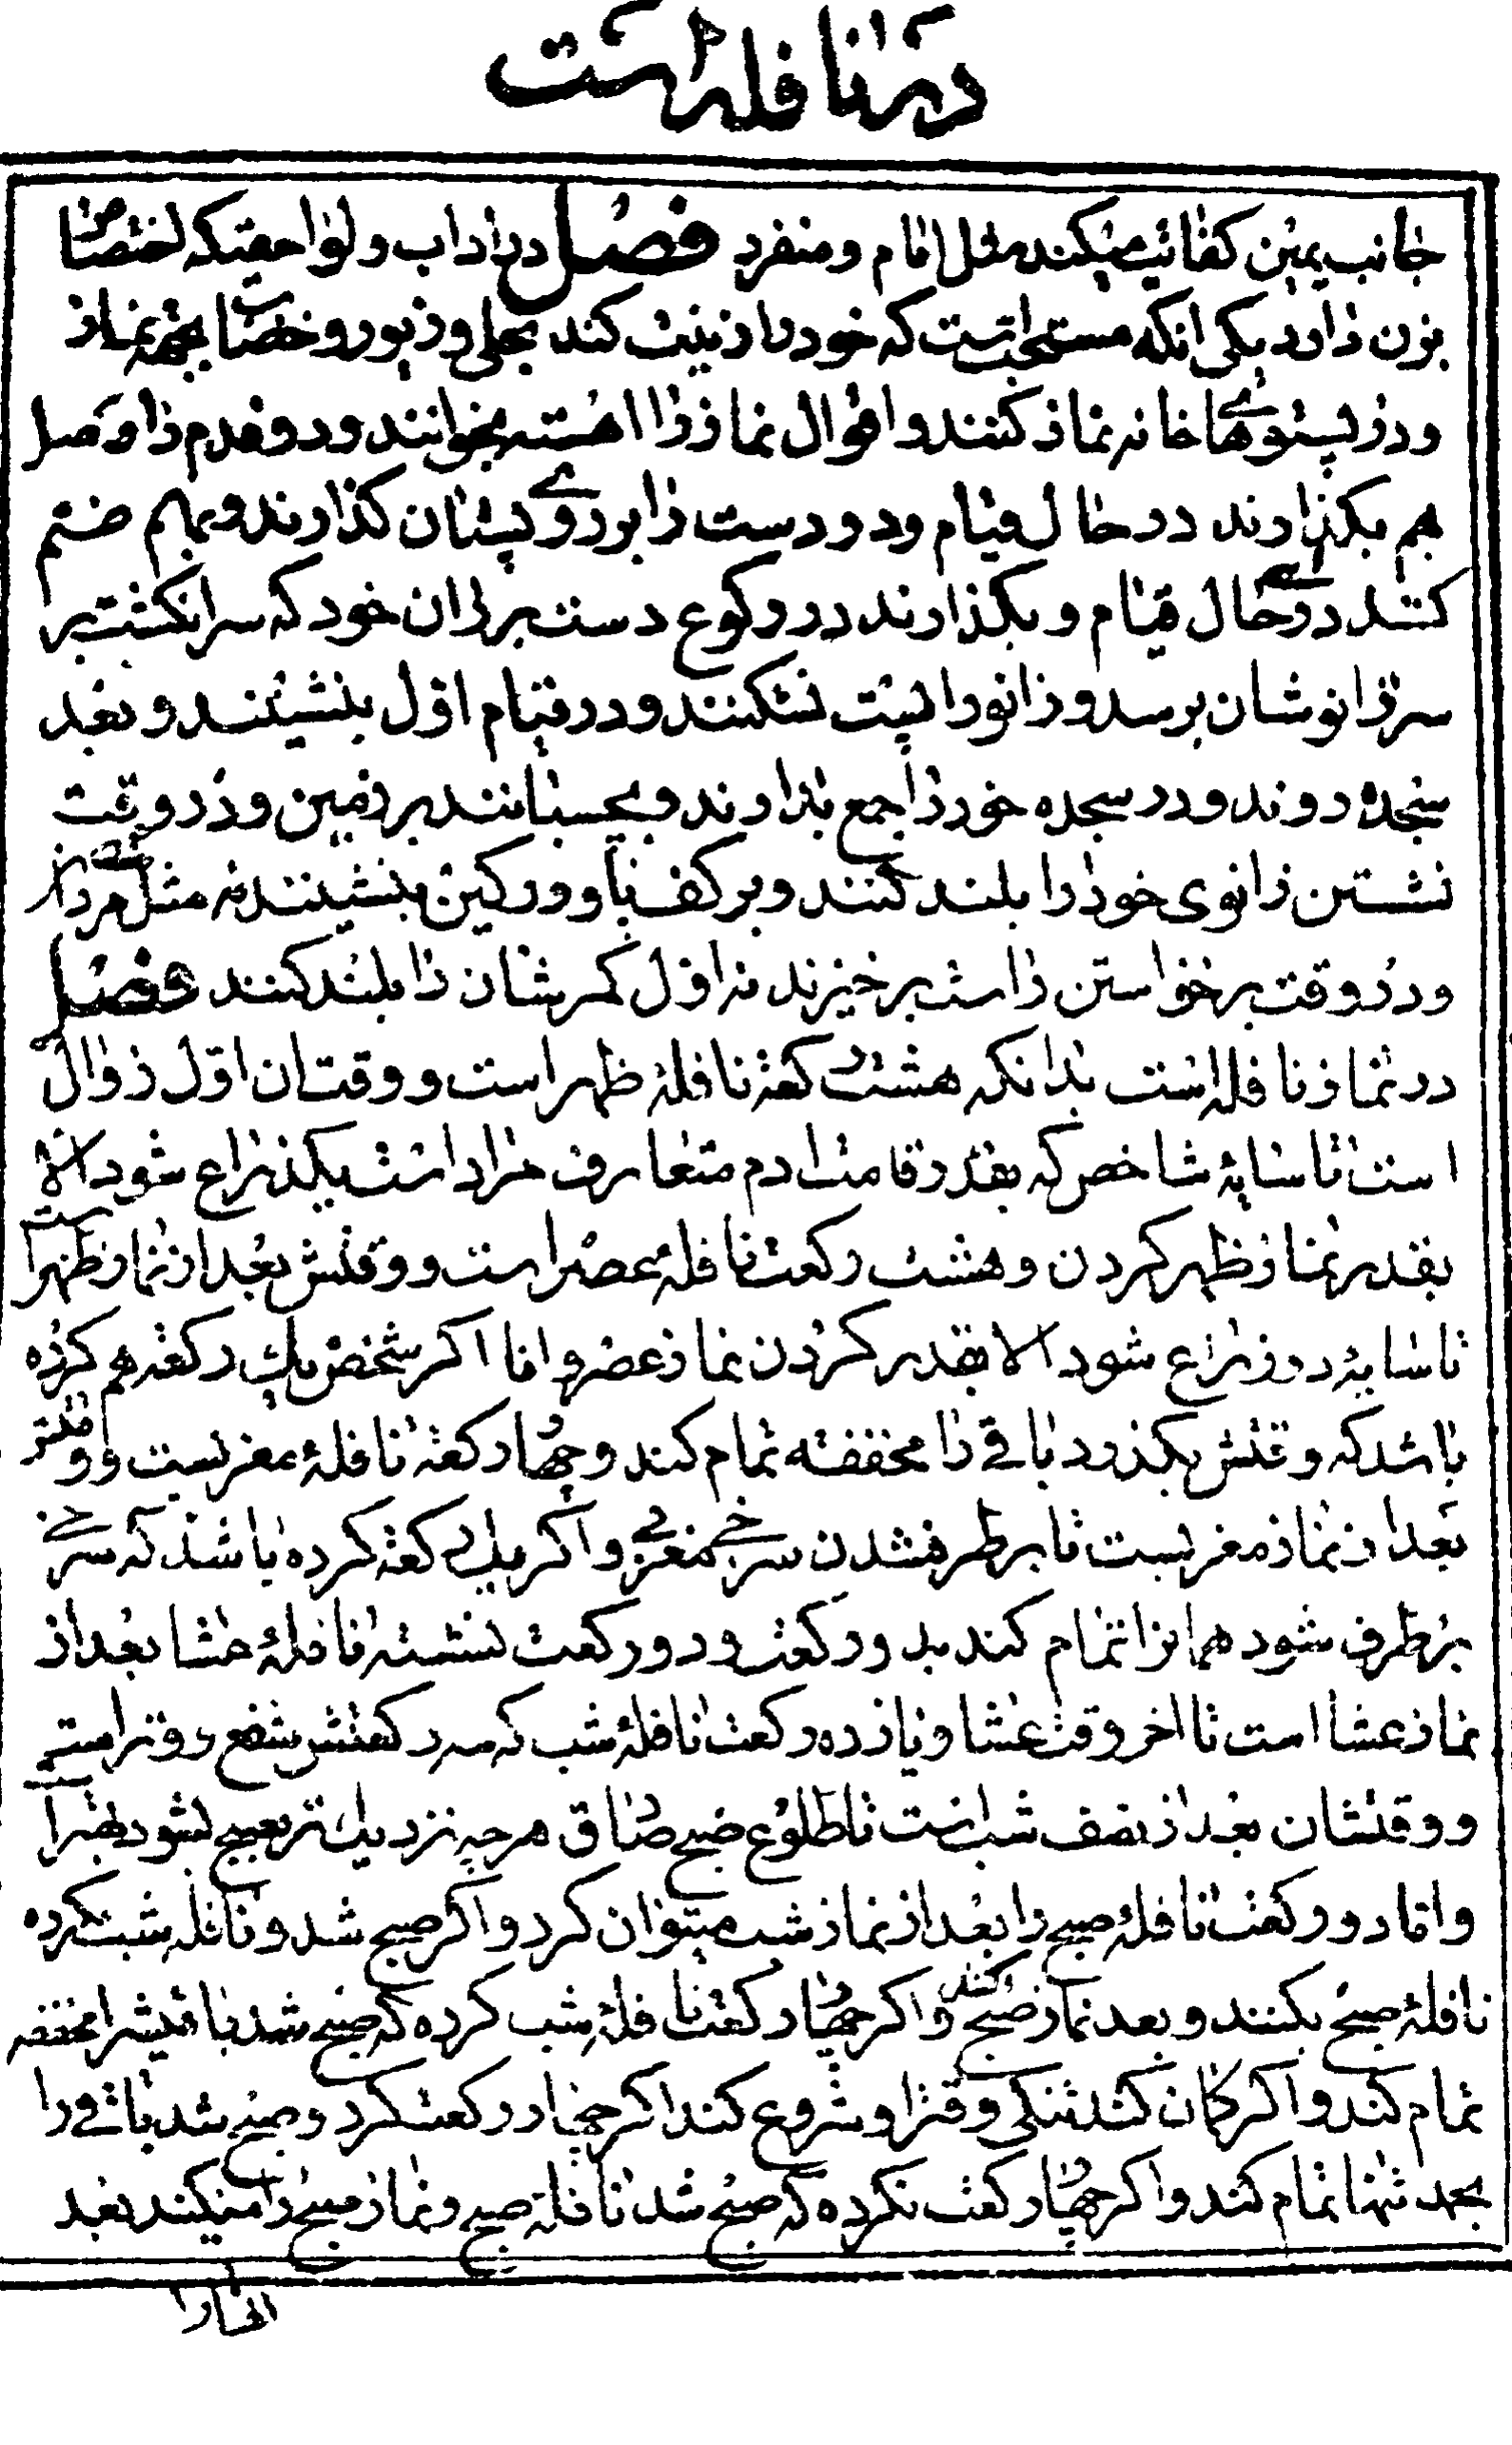 در نافله است
جانب یمین کفائت میکند مثل امام و منفرد فصل در اداب و لواحقیکه اختصاص
بزن دارد یکی انکه مستحبست که خود را زینت کند بحلی و زیور و خضاب بجهة نماز
و در پستوهای خانه نماز کنند و اقوال نماز را اهسته بخوانند و دو قدم را وصل
هم بگذارند در حال قیام و دو دست را بر روی پستان گذارند و بهم ضم
کنند در حال قیام و بگذارند در رکوع دست بر ران خود که سر انگشت بر
سر زانوشان برسد و زانو را پست نشکنند و در قیام اول بنشینند و بعد
سجده روند و در سجده خود را جمع بدارند و بچسبانند بر زمین و در وقت
نشستن زانوی خود را بلند کنند و بر کف پا و ورکین بنشینند نه مثل مردان
و در وقت برخواستن راست برخیزند نه اول کمرشان را بلند کنند فصل
در نماز نافله است بدانکه هشت رکعة نافلهٔ ظهر است و وقتان اول زوال
است تا سایهٔ شاخص که بقدر قامت ادم متعارف مراد است یکذراع شود الا
بقدر نماز ظهر کردن و هشت رکعت نافلهٔ عصر است و وقتش بعد از نماز ظهر است
تا سایهٔ دو ذراع شود الا بقدر کردن نماز عصر و اما اگر شخص یک رکعة هم کرده
باشد که وقتش بگذرد باقی را مخففه تمام کند و چهار رکعة نافلهٔ مغربست و وقتش
بعد از نماز مغربست تا برطرفشدن سرخی مغربی و اگر یک رکعة کرده باشد که سرخی
برطرف شود همانرا تمام کند بدو رکعت و دو رکعت نشسته نافلهٔ عشا بعد از
نماز عشا است تا اخر وقت عشا و یازده رکعت نافلهٔ شب که سه رکعتش شفع و وتر است
و وقتشان بعد از نصف شب است تا طلوع صبح صادق هر چه نزدیک تر بصبح بشود بهتر است
و اما دو رکعت نافلهٔ صبح را بعد از نماز شب میتوان کرد و اگر صبح شد و نافله شب نکرده
نافلهٔ صبح بکنند و بعد نماز صبح کند و اگر چهار رکعت نافلهٔ شب کرده که صبح شد باقیشرا مخففه
تمام کند و اگر گمان کند تنگی وقترا و شروع کند اگر چهار رکعت کرد و صبح شد باقی را
بحمد تنها تمام کند و اگر چهار رکعت نکرده که صبح شد نافلهٔ صبح و نماز صبح را میکند بعد
انها را